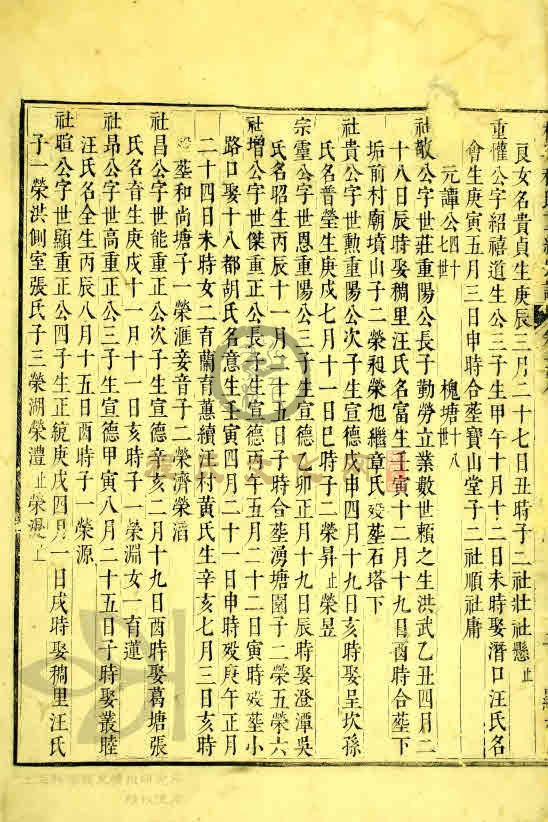 良女名貴貞生庚辰三月二十七日丑時子二社壯社懸止
重懽公字紹禧道生公三子生甲午十月十二日未時娶潛口汪氏名
會生庚寅五月三日申時合塟寶山堂子二社順社庸
元譚公四十七世 槐塘十八世
社敬公字世莊重陽公長子勤勞立業數世賴之生洪武乙丑四月二
十八日辰時娶稠里汪氏名富生壬寅十二月十九日酉時合塟下
垢前村廟墳山子二榮和榮旭繼章氏歿塟石塔下
社貴公字世勲重陽公次子生宣德戊申四月十九日亥時娶呈坎孫
氏名普瑩生庚戌七月十一日巳時子二榮昇止榮昱
宗靈公字世恩重陽公三子生宣德乙卯正月十九日辰時娶澄潭吳
氏名昭生丙辰十一月二十五日子時合塟湧塘園子二榮五榮六
社增公字世傑重正公長子生宣德丙午五月二十二日寅時歿塟小
路口娶十八都胡氏名意生壬寅四月二十一日申時歿庚午正月
二十四日未時女二育蘭育蕙續汪村黃氏生辛亥七月三日亥時
歿塟和尚塘子一榮滙妾音子二榮濟榮滔
社昌公字世能重正公次子生宣德辛亥二月十九日酉時娶葛塘張
氏名音生庚戌十一月十一日亥時子一榮淵女一育蓮
社昂公字世高重正公三子生宣德甲寅八月二十五日子時娶叢睦
汪氏名全生丙辰八月十五日酉時子一榮源
社暄公字世顯重正公四子生正統庚戌四月一日戌時娶稠里汪氏
子一榮洪側室張氏子三榮湖榮澧止榮湜止